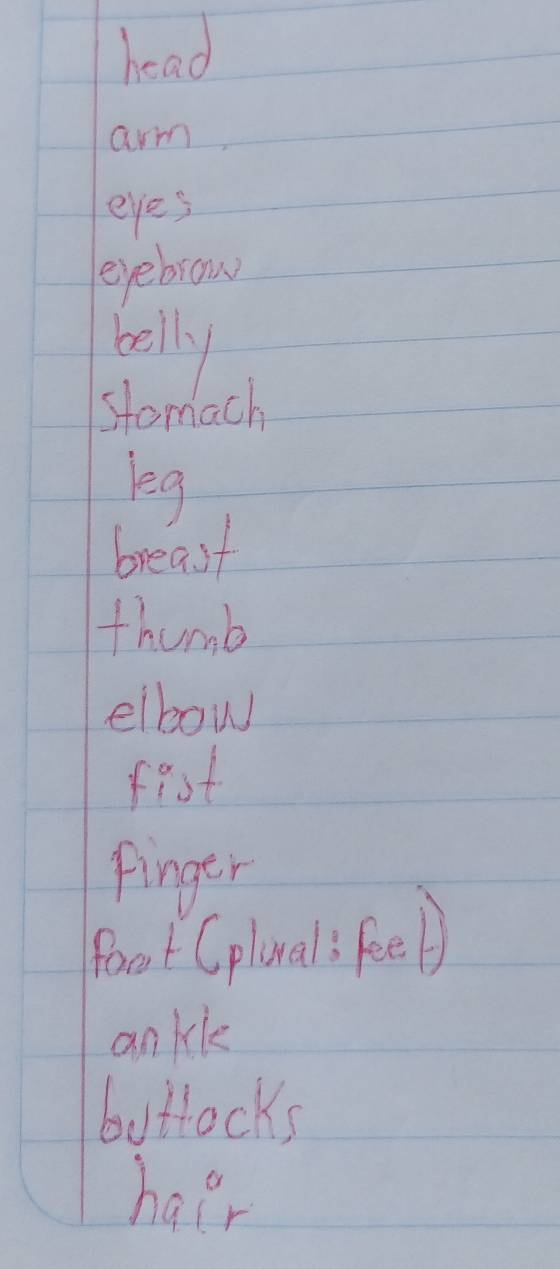 head
arm
eyes
eyebrow
belly
stomach
leg
breast
thumb
elbow
fist
finger
foot (plural: feet)
ankle
buttocks
hair